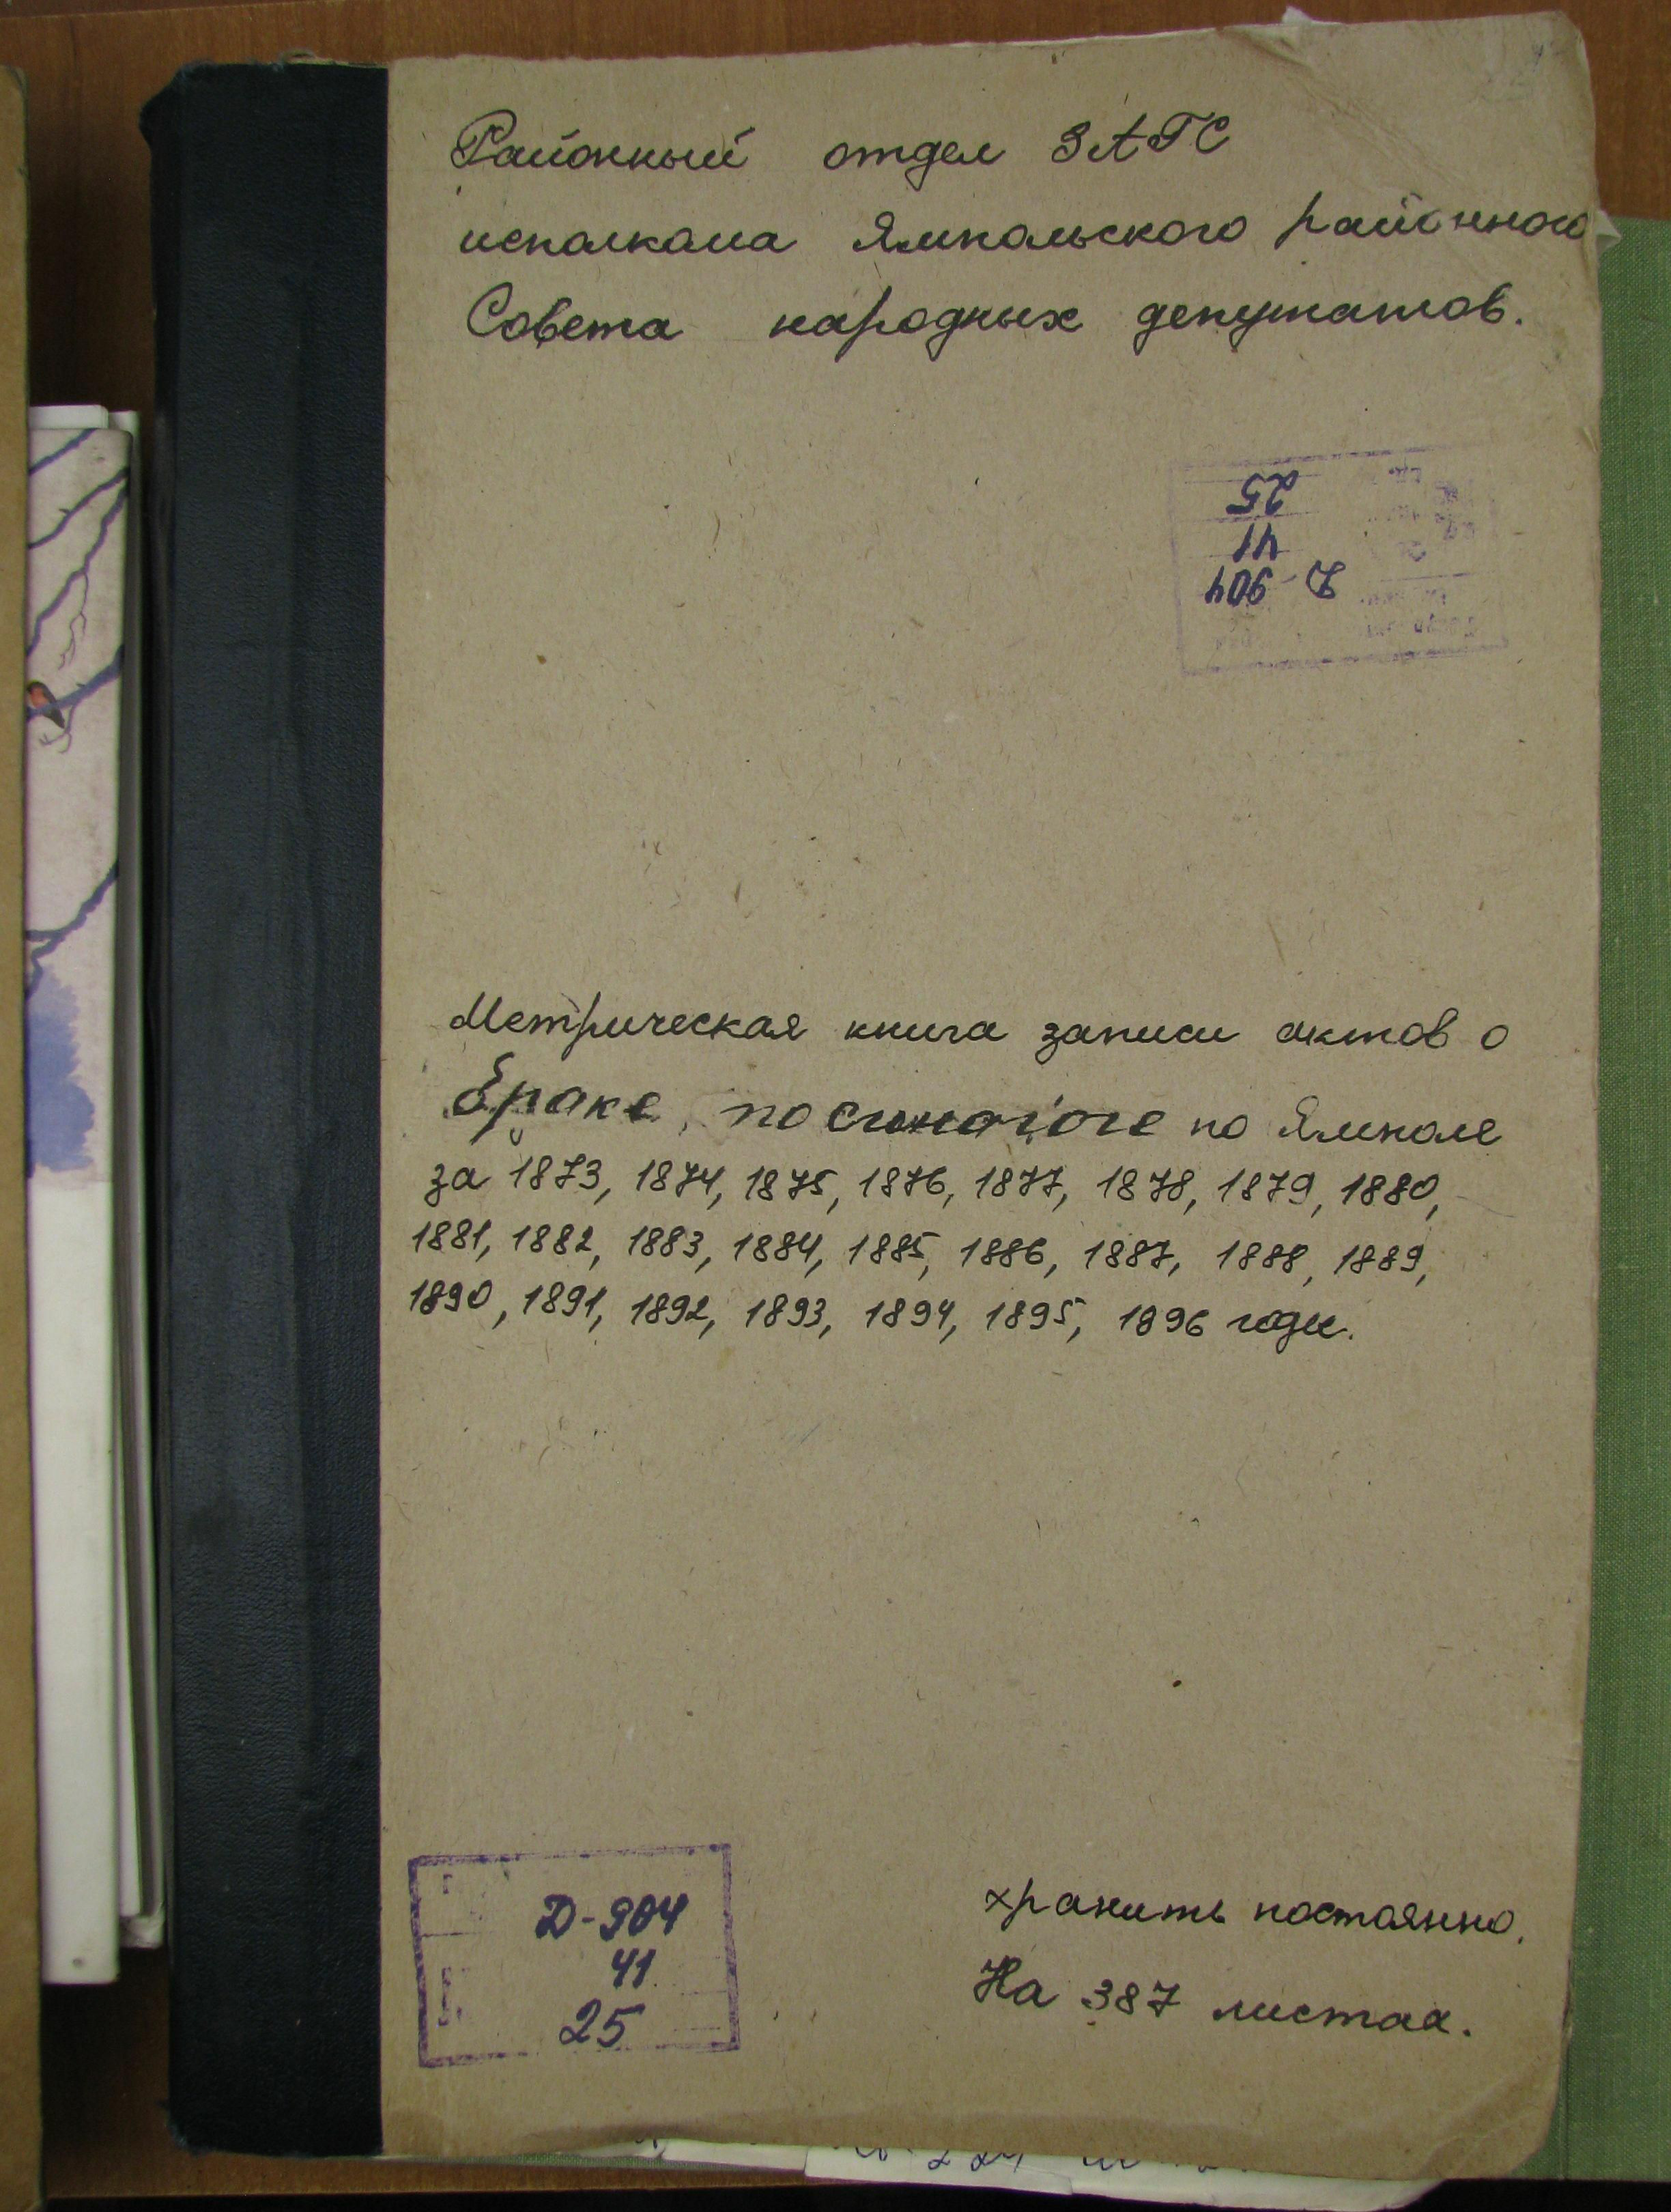 Районный отдел ЗАГС
исполкома Ямпольского районного
Совета народных депутатов.
25
41
Д-904
Метрическая книга записи актов о
браке, по синагоге по Ямполе
за 1873, 1874, 1875, 1876, 1877, 1878, 1879, 1880,
1881, 1882, 1883, 1884, 1885, 1886, 1887, 1888, 1889,
1890, 1891, 1892, 1893, 1894, 1895, 1896 годы.
Д-904
41
25
хранить постоянно.
На 387 листах.